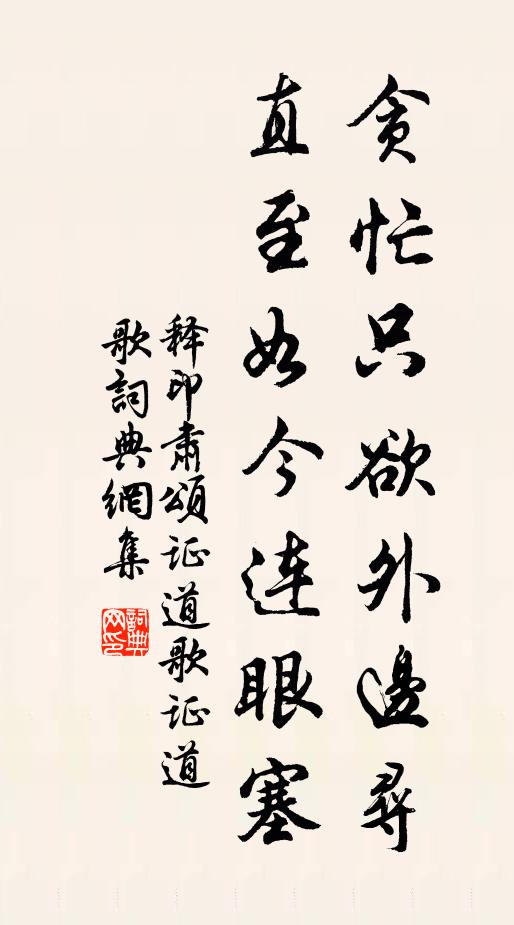 贪忙只欲外邊尋
直至如今连眼塞
释印肃頌证道歌证道
歌詞典網集
詞典网印